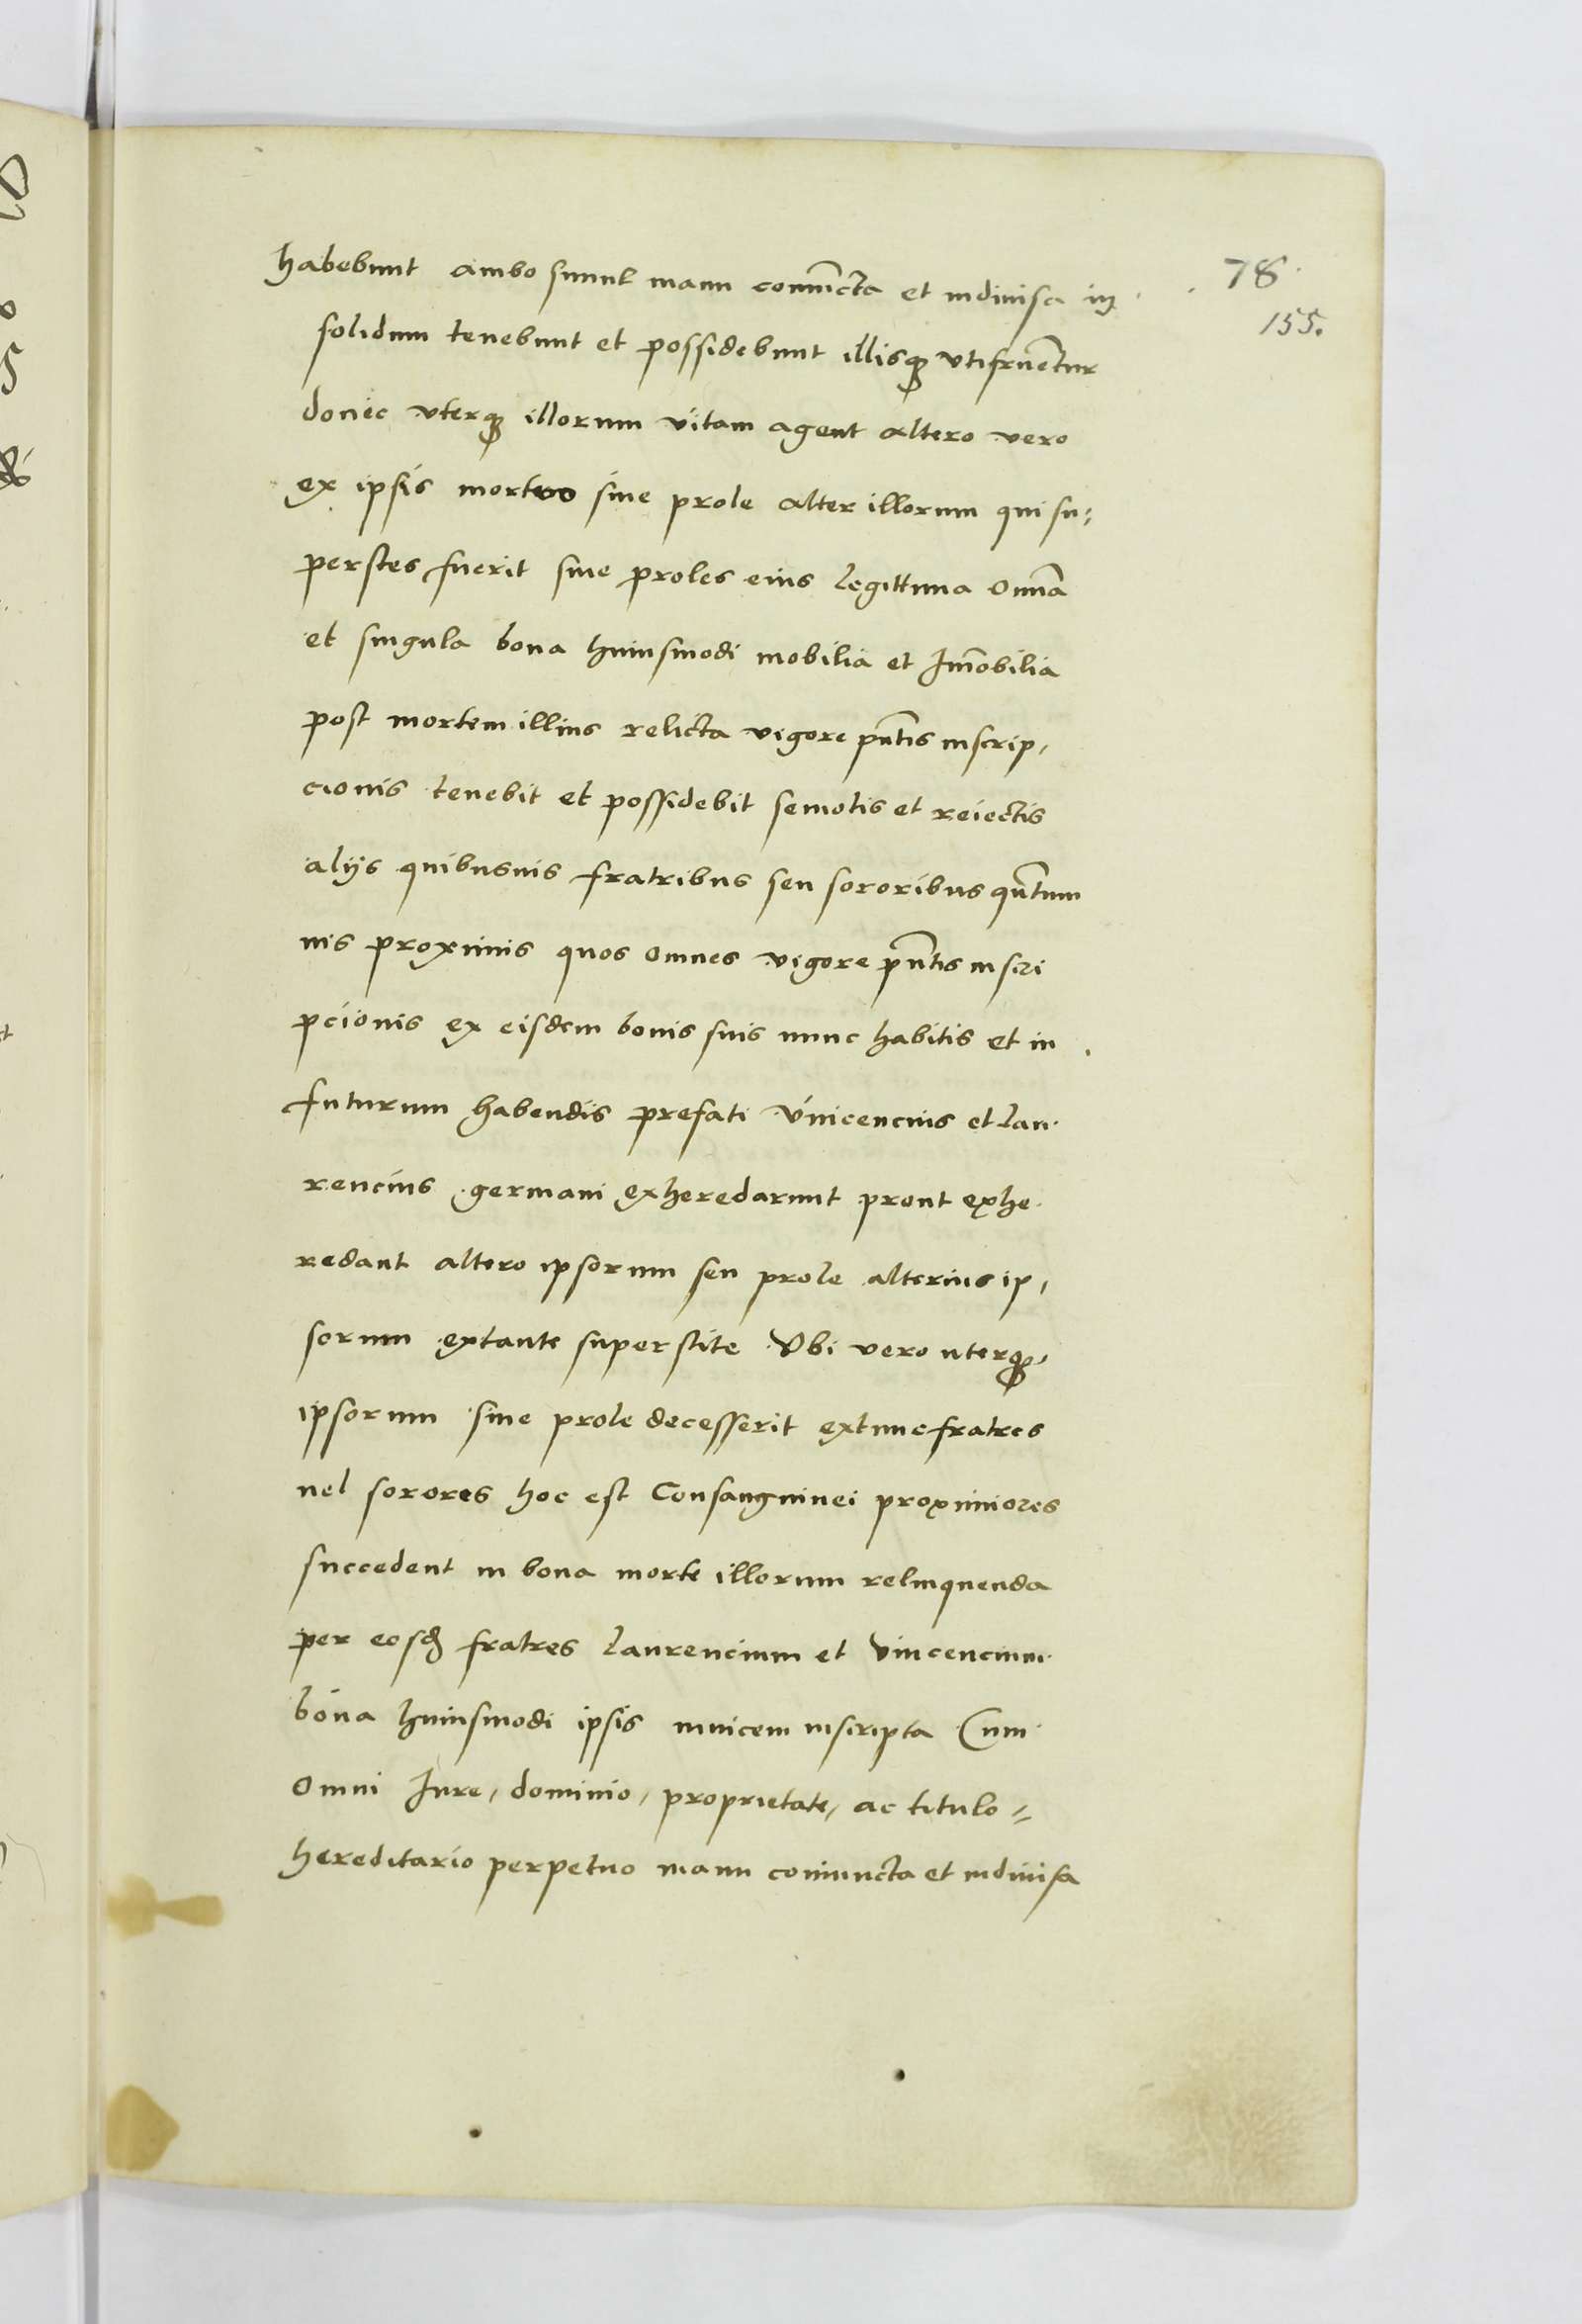 habebunt ambo simul manu coniu͞cta et indiuisa in
78
155.
solidum tenebunt et possidebunt illisqꝫ vtifrue͞tur
donec vterqꝫ illorum vitam agent altero vero
ex ipsis mortuo sine prole alter illorum qui su:
perstes fuerit siue proles eius legittima Omn͞a
et singula bona huiusmodi mobilia et Im͞obilia
post mortem illius relicta vigore pn͞tis inscrip,
cionis tenebit et possidebit semotis et reiectis
alijs quibusuis fratribus seu sororibus qu͞tum
uis proximis quos omnes vigore pn͞tis inscri
pcionis ex eisdem bonis suis nunc habitis et in
futurum habendis prefati Vincencius et Lau
rencius germani exheredarunt prout exhe
redant altero ipsorum seu prole alterius ip,
sorum extante superstite Vbi vero uterqꝫ
ipsorum sine prole decesserit extunc fratres
uel sorores hoc est Consanguinei proximiores
succedent in bona morte illorum relinquenda
per eosdꝫ fratres Laurencium et Vincencium
bona huiusmodi ipsis inuicem inscripta Cum
Omni Iure, dominio, proprietate, ac titulo=
hereditario perpetuo manu coniuncta et indiuisa